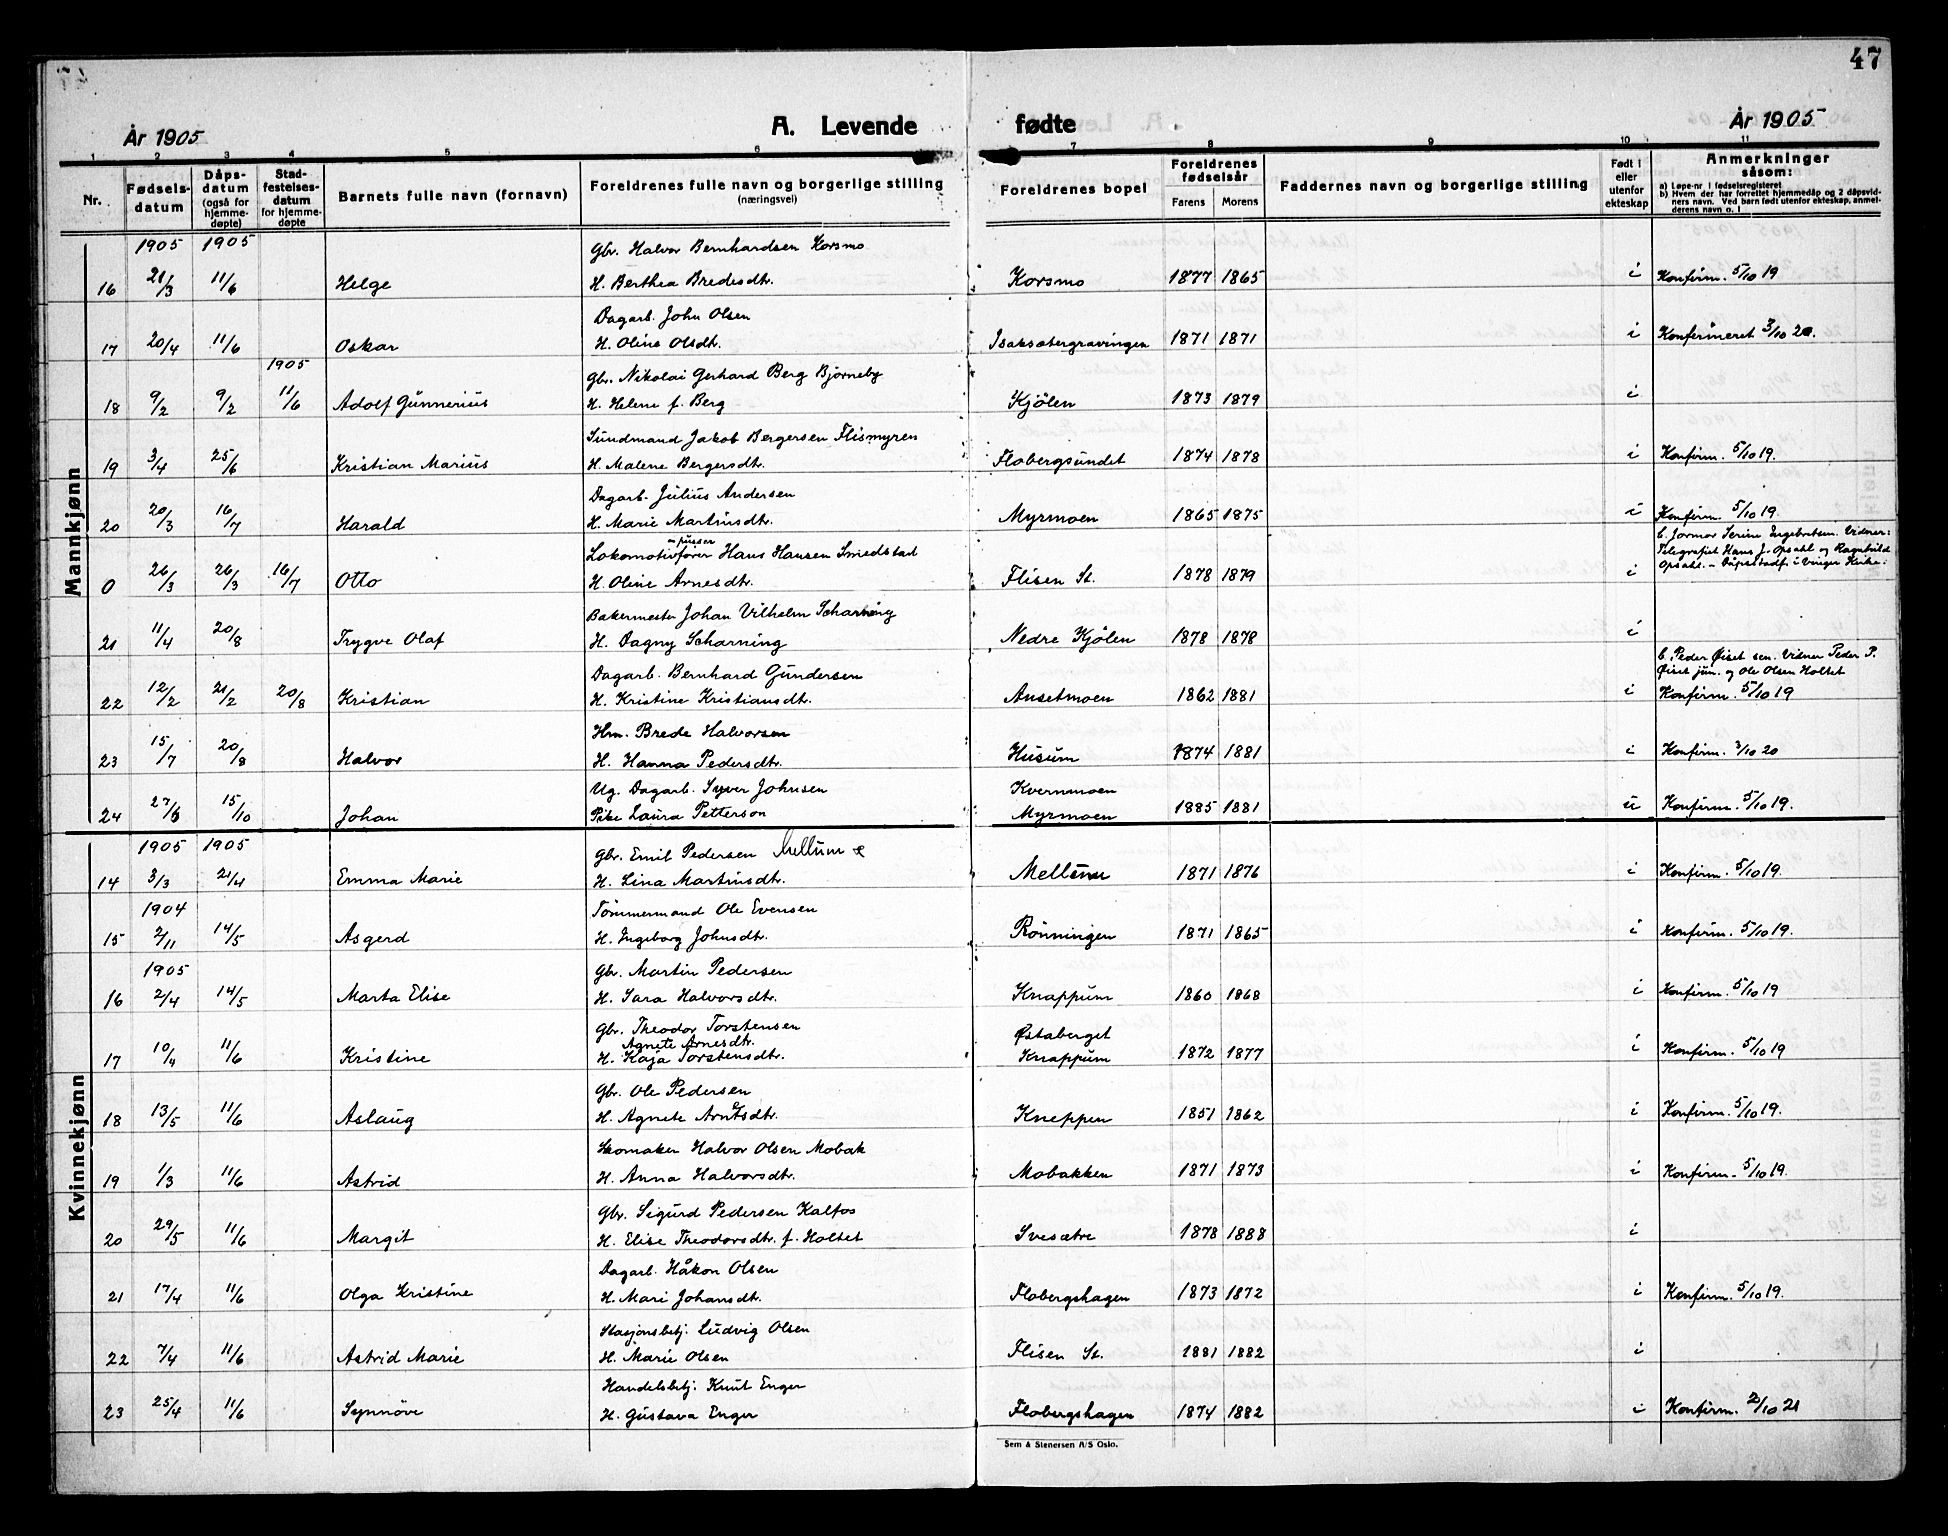 47
A. Levende fødte
År 1905
År 1905
1 2 3 4 5 6 7 8 9 10 11
Nr.
Fødsels-
datum
Dåps-
datum
(også for
hjemme-
døpte)
Stad-
festelses-
datum
for hjemme-
døpte
Barnets fulle navn (fornavn)
Foreldrenes fulle navn og borgerlige stilling
(næringsvei)
Foreldrenes bopel
Foreldrenes
fødselsår
Farens Morens
Faddernes navn og borgerlige stilling
Født i
eller
utenfor
ekteskap
Anmerkninger
såsom:
a) Løpe-nr i fødselsregisteret
b) Hvem der har forrettet hjemmedåp og 2 dåpsvid-
ners navn. Ved barn født utenfor ekteskap, anmel-
derens navn o. l
Mannkjønn
1905 1905 Gbr. Halvor Bernhardsen Korsmo
16 21/3 11/6 Helge H. Berthea Bredesdtr. Korsmo 1877 1865 i Konfirm. 5/10 19
Dagarb. John Olsen
17 20/4 11/6 Oskar H. Oline Olsdtr. Isaksætergravingen 1871 1871 i Konfirmeret 3/10 20.
1905 Gbr. Nikolai Gerhard Berg Bjørneby
18 9/2 9/2 11/6 Adolf Gunnerius H. Helene f. Berg Kjølen 1873 1879 i
Sundmand Jakob Bergersen Flismyren
19 3/4 25/6 Kristian Marius H. Malene Bergersdtr. Flobergsundet 1874 1878 i Konfirm. 5/10 19.
Dagarb. Julius Andersen
20 20/3 16/7 Harald H. Marie Martinsdtr. Myrmoen 1865 1875 i Konfirm. 5/10 19.
pusser
Lokomotivfører Hans Hansen Smedstad
0 26/3 26/3 16/7 Otto H. Oline Arnesdtr. Flisen St. 1878 1879 i
b. Jormor Serine Ingebretsen. Vidner:
Telegrafist Hans J. Opsahl og Ragnhild
Opsahl. - Dåpsstadf. i Vinger Kirke.
Bakermester Johan Vilhelm Scharning
21 11/4 20/8 Trygve Olaf H. Dagny Scharning Nedre Kjølen 1878 1878 i
b. Peder Øiset sen. Vidner Peder P.
Øiset jun. og Ole Olsen Holtet
Dagarb. Bernhard Gundersen
22 12/2 21/2 20/8 Kristian H. Kristine Kristiansdtr. Ansetmoen 1862 1881 i Konfirm. 5/10 19
Hm. Brede Halvorsen
23 15/7 20/8 Halvor H. Hanna Pedersdtr. Husum 1874 1881 i Konfirm. 3/10 20
Ug. Dagarb. Syver Johnsen Kvernmoen
24 27/6 15/10 Johan Pike Laura Petterson Myrmoen 1885 1881 u Konfirm. 5/10 19.
Kvinnekjønn
1905 1905 Gbr. Emil Pedersen Mellum &
14 3/3 21/4 Emma Marie H. Lina Martinsdtr. Mellem 1871 1876 i Konfirm. 5/10 19.
1904 Tømmermand Ole Evensen
15 2/11 14/5 Asgerd H. Ingeborg Johnsdtr. Rønningen 1871 1865 i Konfirm. 5/10 19.
1905 Gbr. Martin Pedersen
16 2/4 14/5 Marta Elise H. Sara Halvorsdtr. Knappum 1860 1868 i Konfirm. 5/10 19
Gbr. Theodor Torstensen Østaberget
Agnete Arnesdtr.
17 10/4 11/6 Kristine H. Kaja Torstensdtr. Knappum 1872 1877 i Konfirm. 5/10 19
Gbr. Ole Pedersen
18 13/5 11/6 Aslaug H. Agnete Arntsdtr. Kneppen 1851 1862 i Konfirm. 5/10 19.
Skomaker Halvor Olsen Mobak
19 1/3 11/6 Astrid H. Anna Halvorsdtr. Mobakken 1871 1873 i Konfirm. 5/10 19.
Gbr. Sigurd Pedersen Kalfos
20 29/5 11/6 Margit H. Elise Theodorsdtr. f. Holtet Svesætre 1878 1888 i
Dagarb. Håkon Olsen
21 17/4 11/6 Olga Kristine H. Mari Johansdtr. Flobergshagen 1873 1872 i Konfirm. 5/10 19.
Stasjonsbetj. Ludvig Olsen
22 7/4 11/6 Astrid Marie H. Marie Olsen Flisen St. 1881 1882 i
Handelsbetj. Knut Enger
23 25/4 11/6 Synnøve H. Gustava Enger Flobergshagen 1874 1882 i Konfirm. 2/10 21
Sem & Stenersen A/S Oslo.